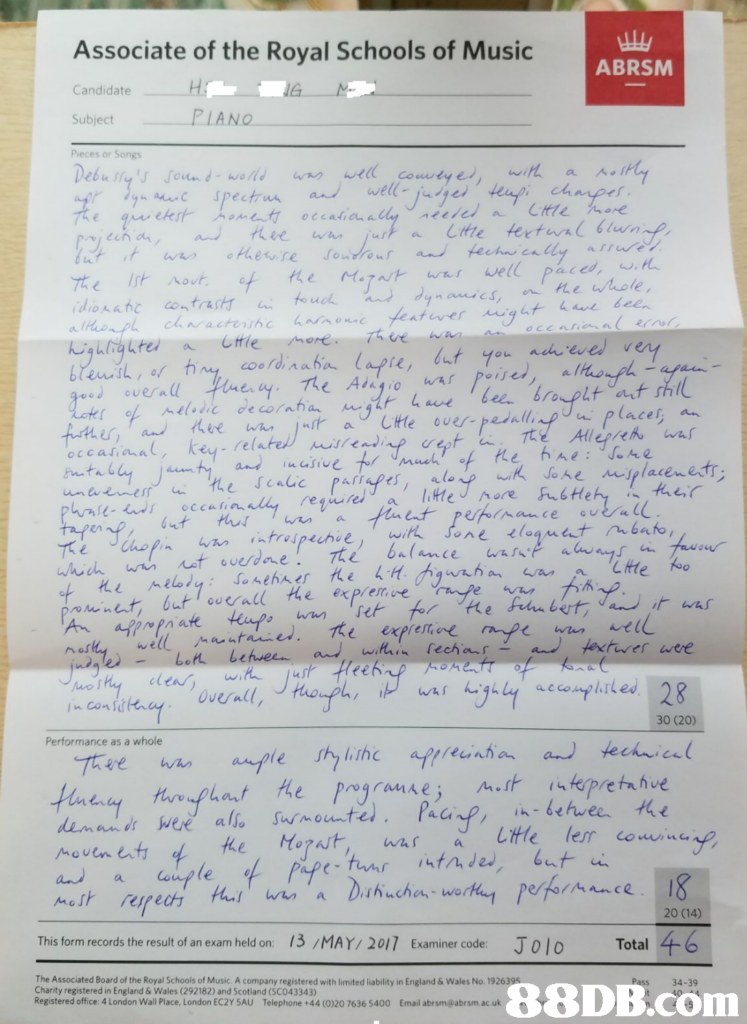 Associate of the Royal Schools of Music
ABRSM
Candidate H
Subject PIANO
Pieces or Songs
Debussy's sound-world was well conveyed, with a mostly
apt dynamic spectrum and well-judged tempi changes.
The quietest moments occasionally needed a little more
projection, and there was just a little textural blurring,
but it was otherwise sonorous and technically assured.
The 1st movt. of the Mozart was well paced, with
idiomatic contrasts in touch and dynamics, on the whole,
although characteristic harmonic features might have been
highlighted a little more. There was an occasional error,
blemish, or tiny coordination lapse, but you achieved very
good overall fluency. The Adagio was poised, although - again -
notes of melodic decoration might have been brought out still
further, and there was just a little over-pedalling in places; an
occasional, key-related misreading crept in. The Allegretto was
suitably jaunty and incisive for much of the time: some
unevenness in the scalic passages, along with some misplacements;
phrase-ends occasionally required a little more subtlety in their
tapering, but this was a fluent performance overall.
The Chopin was introspective, with some eloquent rubato,
which was not overdone. The balance wasn't always in favour
of the melody: sometimes the L.H. figuration was a little too
prominent, but overall the expressive range was fitting.
An appropriate tempo was set for the Schubert, and it was
mostly well maintained. The expressive range was well
judged - both between and within sections - and textures were
mostly clear, with just fleeting moments of tonal
inconsistency. Overall, though, it was highly accomplished. 28
30 (20)
Performance as a whole
There was ample stylistic appreciation and technical
fluency throughout the programme; most interpretative
demands were also surmounted. Pacing, in-between the
movements of the Mozart, was a little less convincing,
and a couple of page-turns intruded, but in
most respects this was a Distinction-worthy performance. 18
20 (14)
This form records the result of an exam held on: 13 /MAY/ 2017 Examiner code: J010 Total 46
The Associated Board of the Royal Schools of Music. A company registered with limited liability in England & Wales No. 1926395
Charity registered in England & Wales (292182) and Scotland (SC043343)
Registered office: 4 London Wall Place, London EC2Y 5AU Telephone +44 (0)20 7636 5400 Email abrsm@abrsm.ac.uk
Pass 34-39
88DB.com